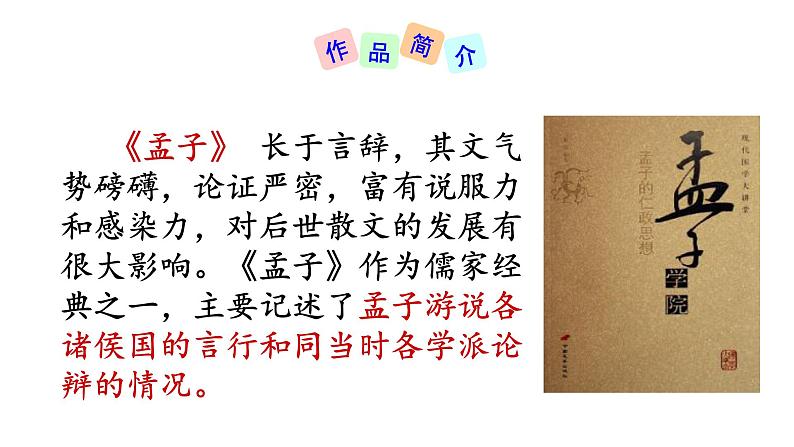 作品简介
《孟子》 长于言辞，其文气
势磅礴，论证严密，富有说服力
和感染力，对后世散文的发展有
很大影响。《孟子》作为儒家经
典之一，主要记述了孟子游说各
诸侯国的言行和同当时各学派论
辩的情况。
现代国学大讲堂
孟子
学院
孟子的仁政思想